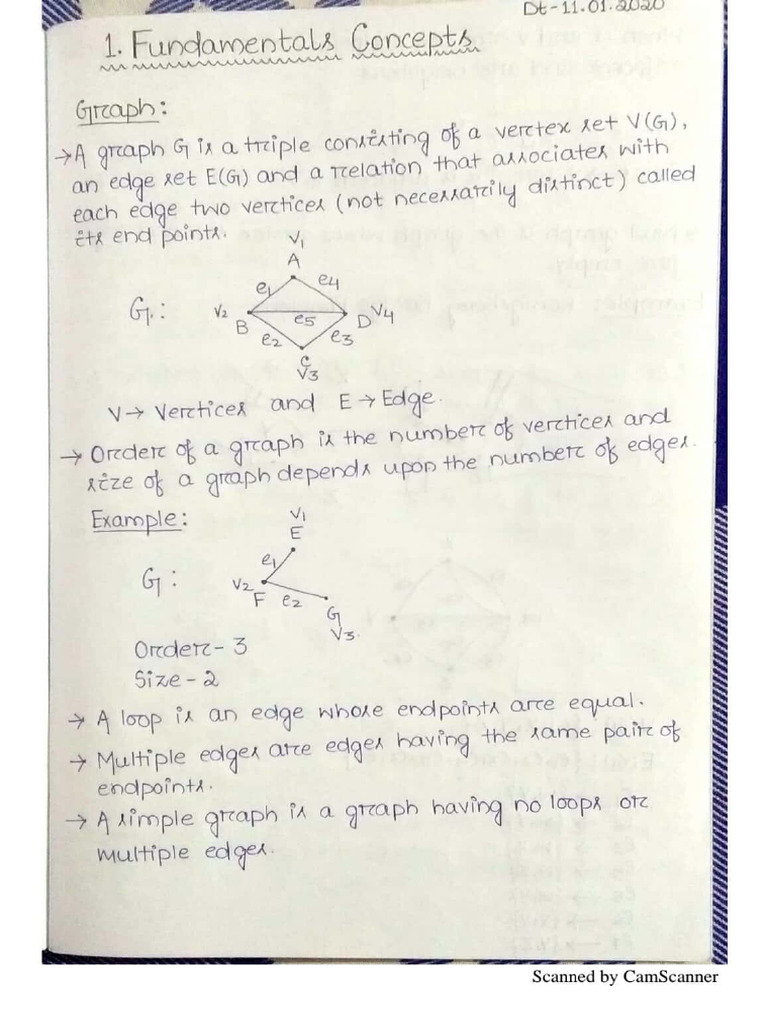 Dt-11.01.2020
1. Fundamentals Concepts.
Graph:
→A graph G is a triple consisting of a vertex set V(G),
an edge set E(G) and a relation that associates with
each edge two vertices (not necessarily distinct) called
its end points.
V1
A
e1 e4
G1: V2 B e5 D V4
e2 e3
C
V3
V→ Vertices and E → Edge.
→ Order of a graph is the number of vertices and
size of a graph depends upon the number of edges.
Example:
V1
E
e1
G: V2
F e2
G
V3.
Order- 3
Size - 2
→ A loop is an edge whose endpoints are equal.
→ Multiple edges are edges having the same pair of
endpoints.
→ A simple graph is a graph having no loops or
multiple edges.
Scanned by CamScanner